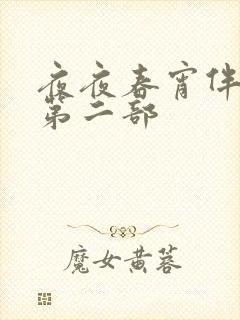 夜夜春宵伴
第二部
魔女黄蓉